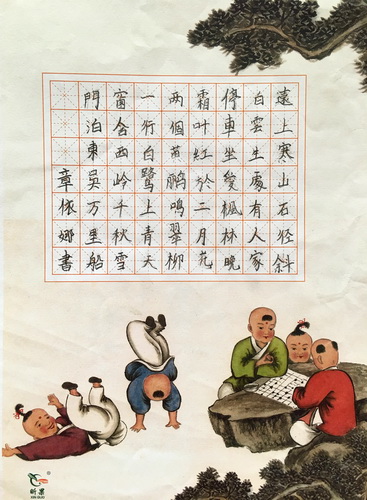 遠上寒山石径斜
白雲生處有人家
停車坐愛楓林晚
霜叶紅於二月花
两個黄鹂鳴翠柳
一行白鹭上青天
窗含西岭千秋雪
門泊東吳万里船
章依娜書
昕果